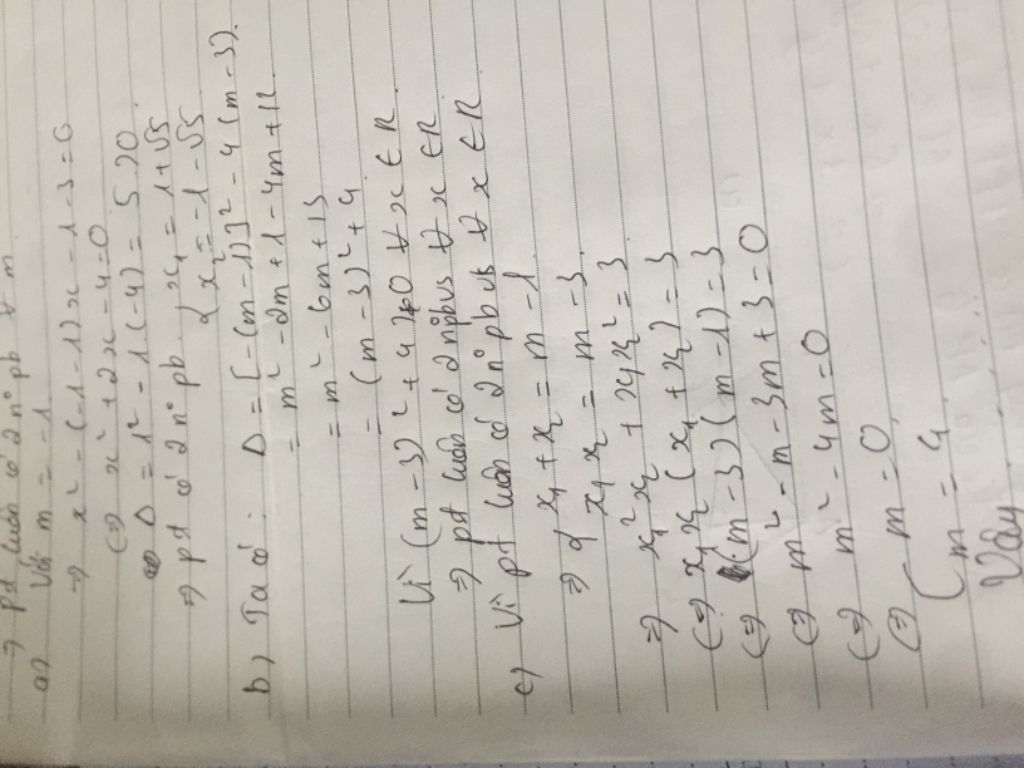 => pt luôn có 2 n° pb ∀ m
a) Với m = -1
=> x² - (-1-1)x - 1 - 3 = 0
<=> x² + 2x - 4 = 0
Δ = 1² - 1(-4) = 5 > 0
=> pt có 2 n° pb { x₁ = 1 + √5
x₂ = -1 - √5
b) Ta có: Δ = [-(m-1)]² - 4(m-3).
= m² - 2m + 1 - 4m + 12
= m² - 6m + 13
= (m-3)² + 4
Vì (m-3)² + 4 > 0 ∀ x ∈ R.
=> pt luôn có 2 n° pb ∀ x ∈ R
c) Vì pt luôn có 2 n° pb ∀ x ∈ R
=> { x₁ + x₂ = m - 1
x₁ x₂ = m - 3
=> x₁² x₂ + x₁ x₂² = 3
<=> x₁ x₂ (x₁ + x₂) = 3
<=> (m-3)(m-1) = 3
<=> m² - m - 3m + 3 = 0
<=> m² - 4m = 0
<=> ( m = 0
m = 4
Vậy